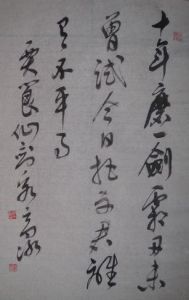 十年磨一劍霜刃未
曾試今日把示君誰
有不平事
賈閬仙劍客